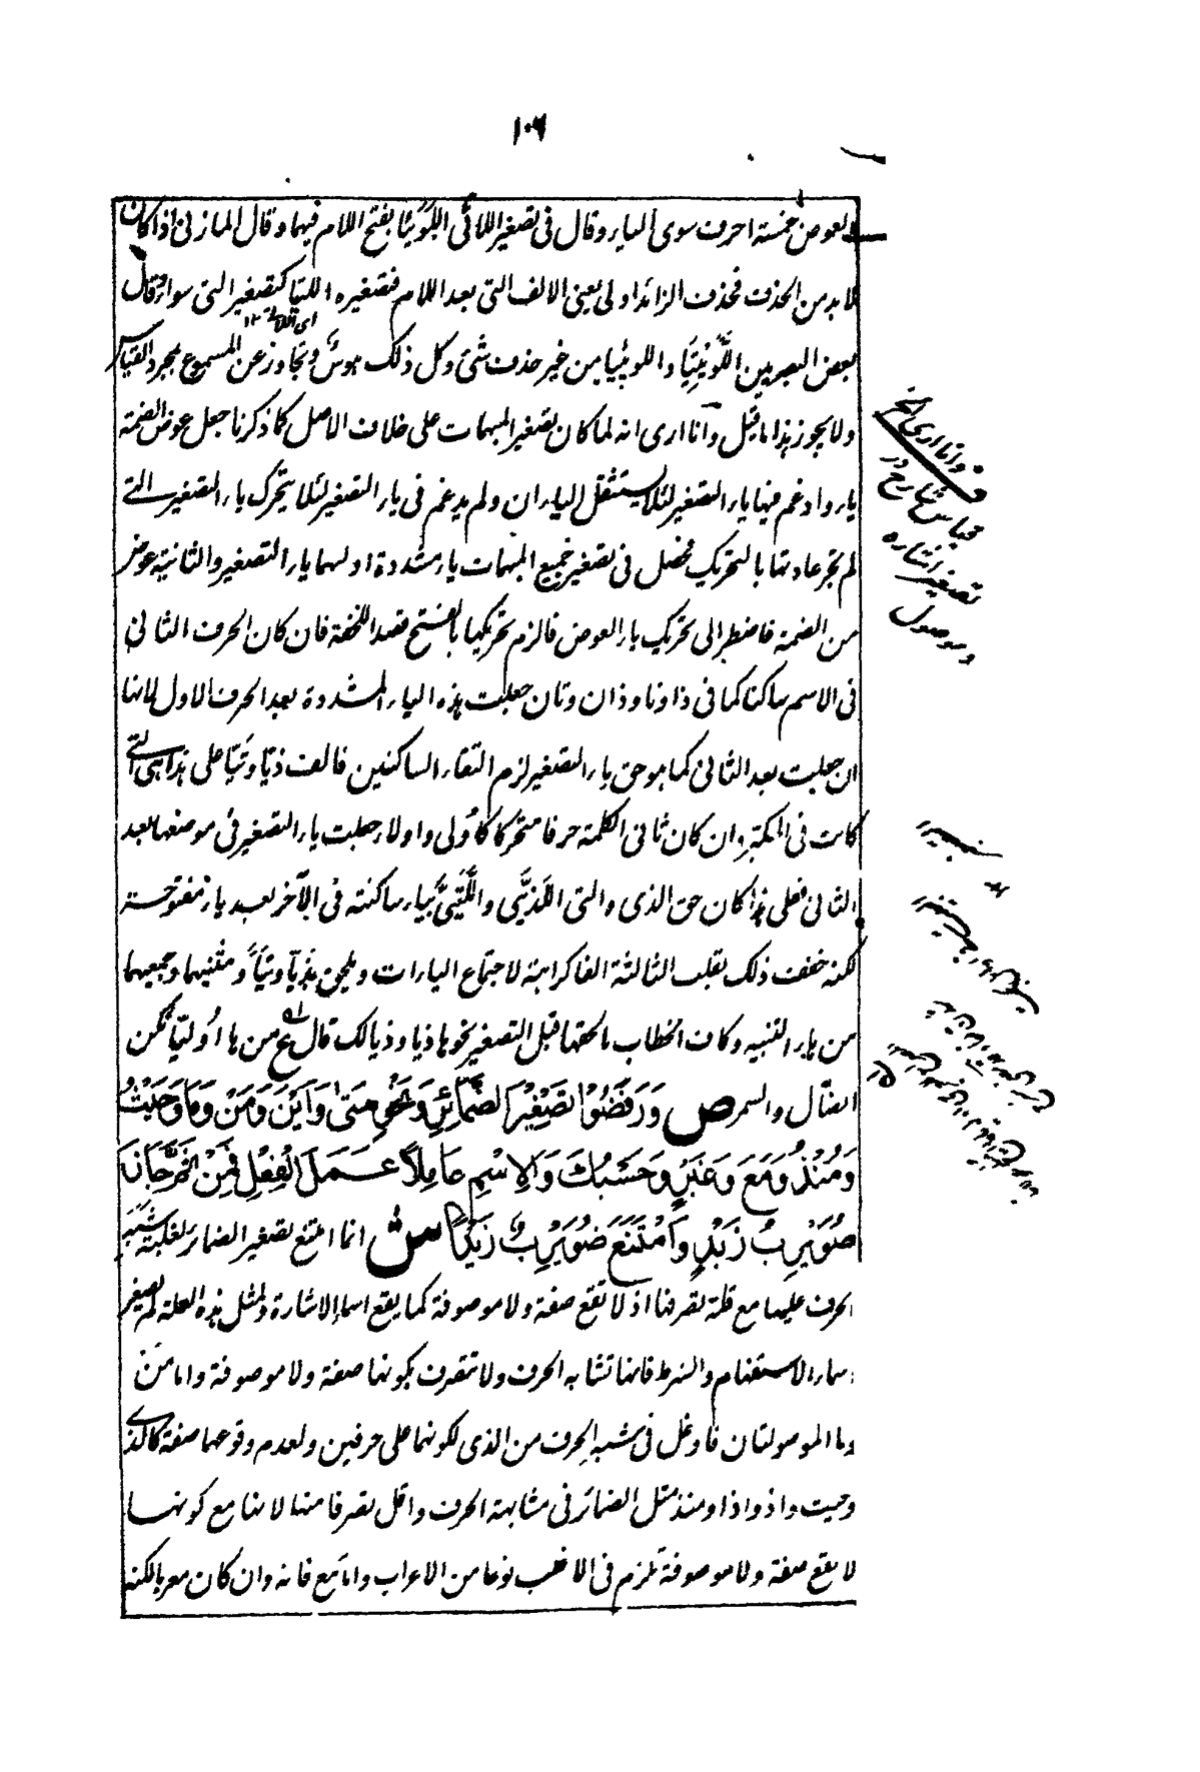 ١٠٦
والعوض خمسة احرف سوى الياء وقال فى تصغير اللائى اللَّوَيْئا بفتح اللام فيهما وقال المازنى اذا كان
لا بد من الحذف فحذف الزائد اولى يعنى الالف التى بعد اللام فتصغيره اللتيا كتصغير التى سواء وقال
بعض البصريين اللَّوَيْتِيَا واللويئيا من غير حذف شئ وكل ذلك هوسٌ وتجاوز عن المسموع بمجرد القياس
ولا يجوز هذا ما قيل وانا ارى انه لما كان تصغير المبهمات على خلاف الاصل كما ذكرنا جعل عوض الضمة
ياء وادغم فيها ياء التصغير لئلا يستثقل الياءان ولم يدغم فى ياء التصغير لئلا يتحرك ياء التصغير التى
لم تجر عادتها بالتحريك فحصل فى تصغير جميع المبهمات ياء مشددة اولهما ياء التصغير والثانية عوض
من الضمة فاضطر الى تحريك ياء العوض فالزم تحريكها بالفتح قصدا للخفة فان كان الحرف الثانى
فى الاسم ساكنا كما فى ذا وتا وذان وتان جعلت هذه الياء المشددة بعد الحرف الاول لانها
ان جعلت بعد الثانى كما هو حق ياء التصغير لزم التقاء الساكنين فالف ذيّا وتَيّا على هذا هى التى
كانت فى المكبر وان كان ثانى الكلمة حرفا متحركا كاُولى واولاء جعلت ياء التصغير فى موضعها بعد
الثانى فعلى هذا كان حق الذى والتى اللَّذَيَّىْ واللَّتَيَّىْ بياء ساكنة فى الآخر بعد ياء مفتوحة
لكنه خفف ذلك بقلب الثالثة الفا كراهة لاجتماع الياءات ويلحق بذيّا وتيّا ومثنيهما وجمعيهما
من هاء التنبيه وكاف الخطاب ما لحقها قبل التصغير نحو هاذيا وذيالك قال ع من هاؤليّائكن
الضال والسمر ص وَرَفَضُوْا تَصْغِيْرَ الضَّمَائِرِ وَنَحْوِ مَتىٰ وَاَيْنَ وَمَنْ وَمَا وَحَيْثُ
وَمُنْذُ وَمَعَ وَغَيْرٍ وَحَسْبُكَ وَالِاسْمِ عَامِلاً عَمَلَ الْفِعْلِ فَمِنْ ثَمَّ جَازَ
ضُوَيْرِبُ زَيْدٍ وَامْتَنَعَ ضُوَيْرِبٌ زَيْدًا ش انما امتنع تصغير الضمائر لغلبة شبه
الحرف عليها مع قلة تصرفها اذ لا تقع صفة ولا موصوفة كما يقع اسماء الاشارة ولمثل هذه العلة لم يصغر
اسماء الاستفهام والشرط فانها تشابه الحرف ولا تتصرف بكونها صفة ولا موصوفة واما مَن
وما الموصولتان فاوغل فى شبه الحرف من الذى لكونهما على حرفين ولعدم وقوعهما صفة كالذى
وحيث واذ واذا ومنذ مثل الضمائر فى مشابهة الحرف واقل تصرفا منها لانها مع كونها
لا يقع صفة ولا موصوفة تلزم فى الاغلب نوعا من الاعراب واما مَع فانه وان كان معربا لكنه
وانا ارى الخ
قياس شارح در
تصغير اشاره
وموصول